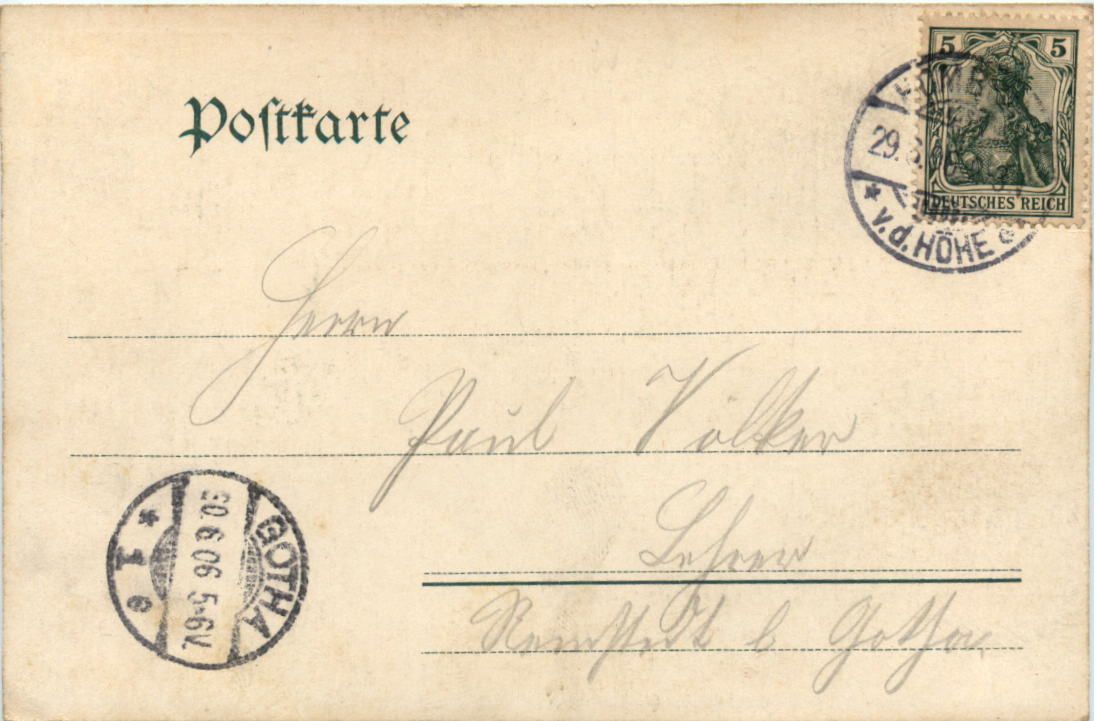 Postkarte
5 5
DEUTSCHES REICH
29.6.
v. d. HÖHE
Herrn
Paul Völker
Lehrer
Remstedt b Gotha
GOTHA
30.6.06 5-6V.
* 1 e